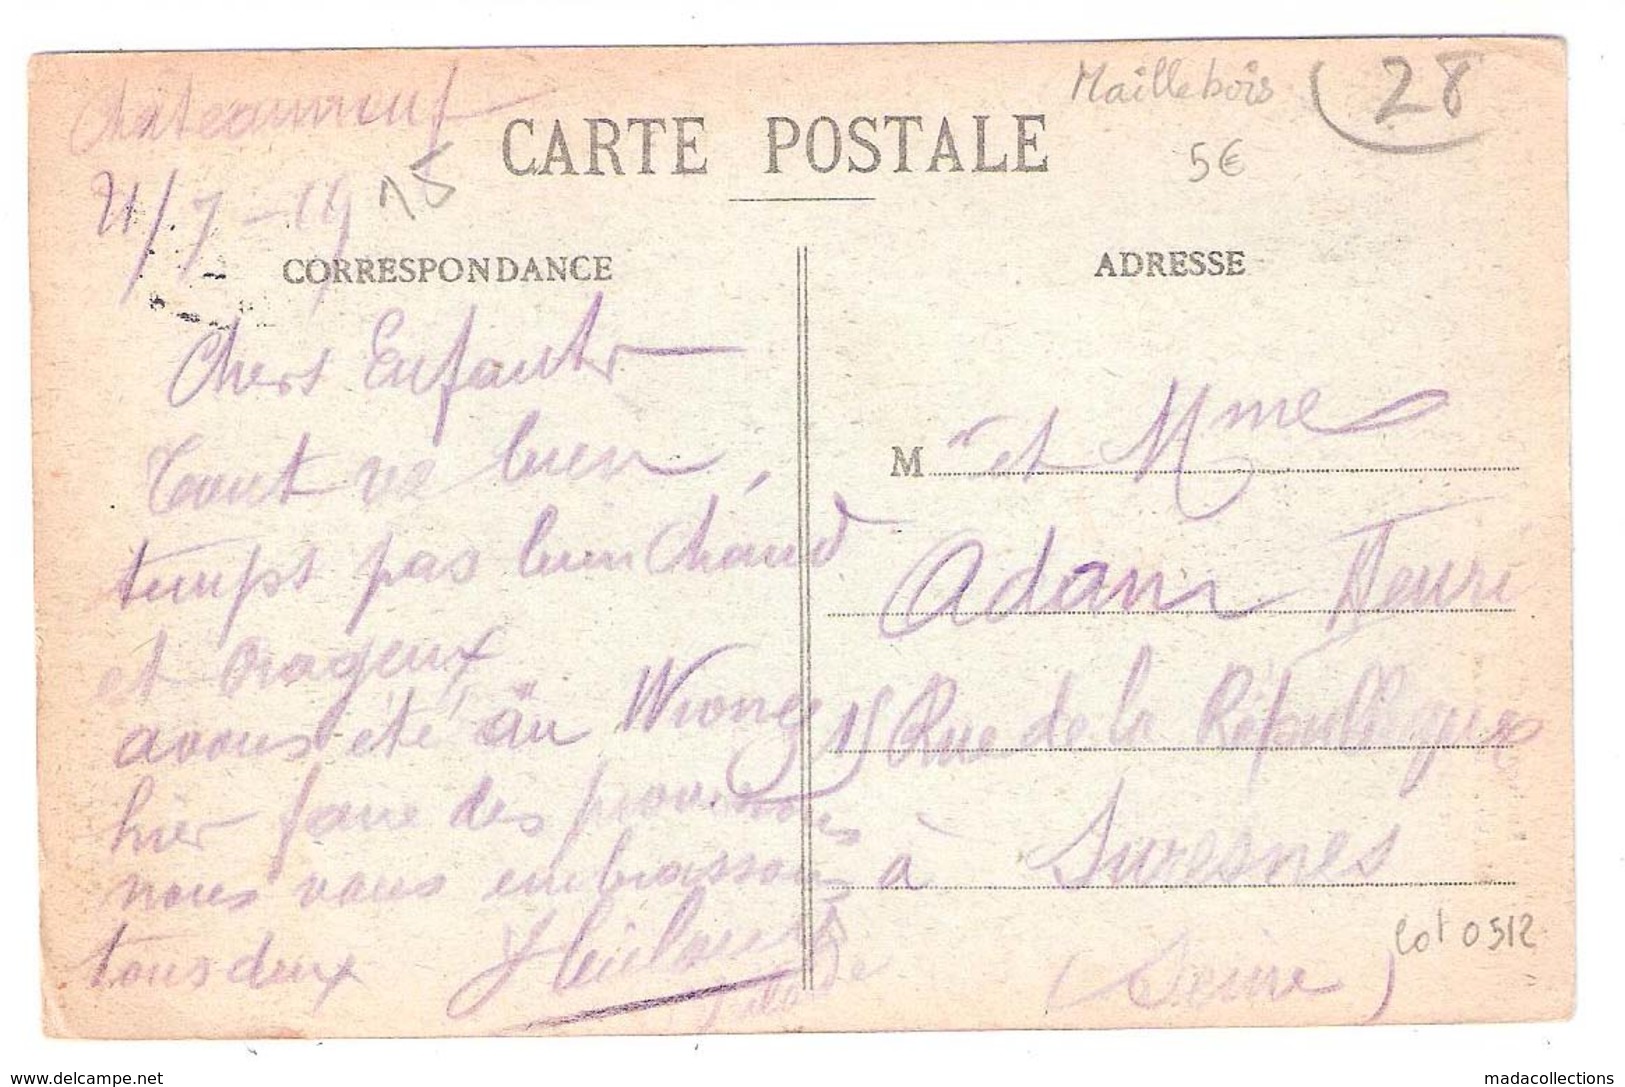 Chateauneuf
21/7-19 15
Maillebois
28
5€
CARTE POSTALE
CORRESPONDANCE
ADRESSE
Chers Enfants
tout va bien
temps pas bien chaud
et orageux
avons été au
hier faire des provisions
nous vous embrassons
tous deux
M et Mme
Adam Henri
15 Rue de la République
à Suresnes
(Seine)
lot 0512
www.delcampe.net
madacollections